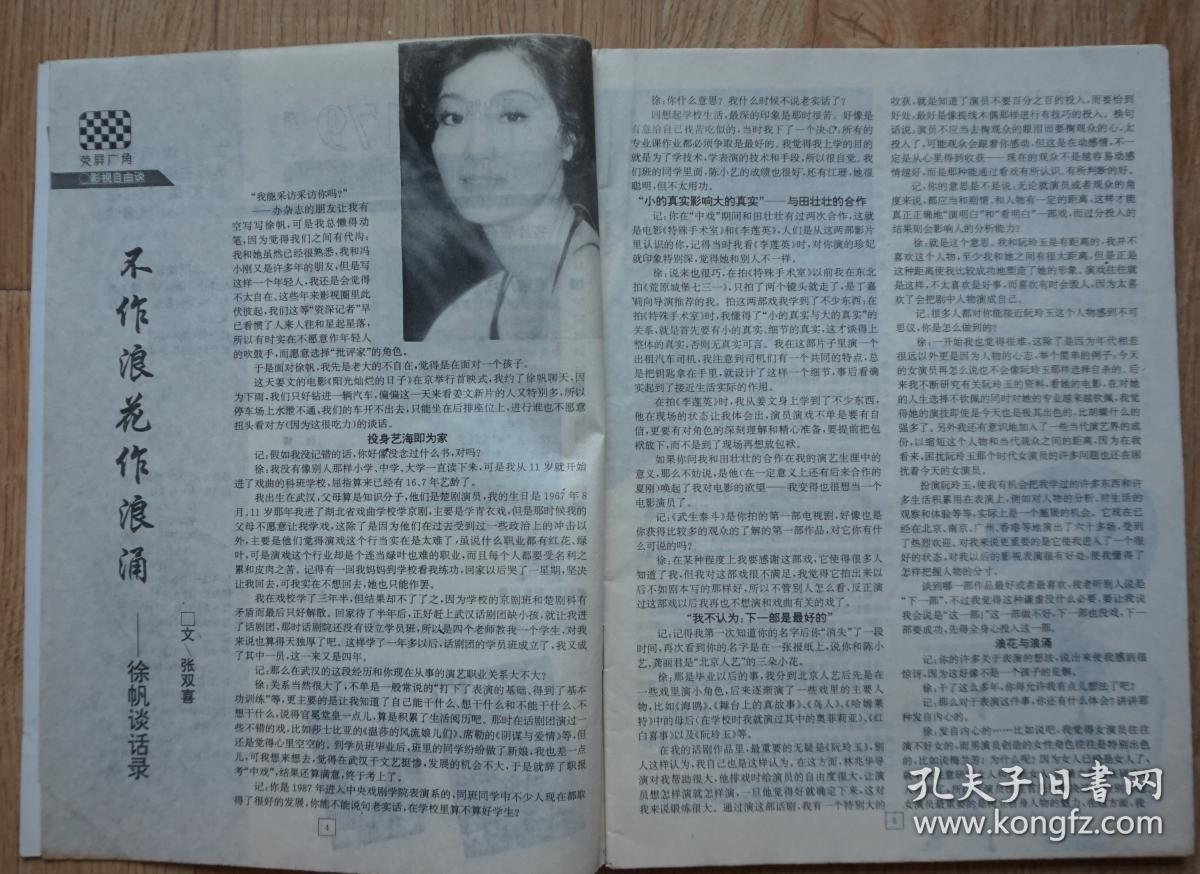 荧屏广角
○影视自由谈
不作浪花作浪涌
——徐帆谈话录
□文╲张双喜
“我能采访采访你吗？”
——办杂志的朋友让我有
空写写徐帆，可是我总懒得动
笔，因为觉得我们之间有代沟：
我和她虽然已经很熟悉，我和冯
小刚又是许多年的朋友，但是写
这样一个年轻人，我还是会觉得
不太自在。这些年来影视圈里此
伏彼起，我们这等“资深记者”早
已看惯了人来人往和星起星落，
所以有时实在不愿意作年轻人
的吹鼓手，而愿意选择“批评家”的角色。
于是面对徐帆，我先是老大的不自在，觉得是在面对一个孩子。
这天姜文的电影《阳光灿烂的日子》在京举行首映式，我约了徐帆聊天，因
为下雨，我们只好钻进一辆汽车，偏偏这一天来看姜文新片的人又特别多，所以
停车场上水泄不通，我们的车开不出去，只能坐在后排座位上，进行谁也不愿意
扭头看对方（因为这很吃力）的谈话。
投身艺海即为家
记：假如我没记错的话，你好像没念过什么书，对吗？
徐：我没有像别人那样小学、中学、大学一直读下来，可是我从11岁就开始
进了戏曲的科班学校，屈指算来已经有16、7年艺龄了。
我出生在武汉，父母算是知识分子，他们是楚剧演员，我的生日是1967年8
月，11岁那年我进了湖北省戏曲学校学京剧，主要是学青衣戏，但是那时候我的
父母不愿意让我学戏，这除了是因为他们在过去受到过一些政治上的冲击以
外，主要是他们觉得演戏这个行当实在是太难了，虽说什么职业都有红花、绿
叶，可是演戏这个行业却是个连当绿叶也难的职业，而且每个人都要受名利之
累和皮肉之苦。记得有一回我妈妈到学校看我练功，回家以后哭了一星期，坚决
让我回去，可我实在不想回去，她也只能作罢。
我在戏校学了三年半，但结果却不了了之，因为学校的京剧班和楚剧科有
矛盾而最后只好解散。回家待了半年后，正好赶上武汉话剧团缺小孩，就让我进
了话剧团，那时话剧院还没有设立学员班，所以是四个老师教我一个学生，对我
来说也算得天独厚了吧。这样学了一年多以后，话剧团的学员班成立了，我又成
了其中一员，这一来又是四年。
记：那么在武汉的这段经历和你现在从事的演艺职业关系大不大？
徐：关系当然很大了，不单是一般常说的“打下了表演的基础、得到了基本
功训练”等，更主要的是让我知道了自己能干什么、想干什么和不能干什么、不
想干什么，说得官冕堂皇一点儿，算是积累了生活阅历吧。那时在话剧团演过一
些不错的戏，比如莎士比亚的《温莎的风流娘儿们》、席勒的《阴谋与爱情》等，但
还是觉得心里空空的。到学员班毕业后，班里的同学纷纷做了新娘，我也差一点
儿，可我想来想去，觉得在武汉干文艺挺惨，发展的机会不大，于是就辞了职报
考“中戏”，结果还算满意，终于考上了。
记：你是1987年进入中央戏剧学院表演系的，同班同学中不少人现在都取
得了很好的发展，你能不能说句老实话，在学校里算不算好学生？
4
徐：你什么意思？我什么时候不说老实话了？
回想起学校生活，最深的印象是那时很苦。好像是
有意给自己找苦吃似的，当时我下了一个决心，所有的
专业课作业都必须争取是最好的。我觉得我上学的目的
就是为了学技术，学表演的技术和手段，所以很自觉。我
们班的同学里面，陈小艺的成绩也很好，还有江珊，她很
聪明，但不太用功。
“小的真实影响大的真实”——与田壮壮的合作
记：你在“中戏”期间和田壮壮有过两次合作，这就
是电影《特殊手术室》和《李莲英》，人们是从这两部影片
里认识的你，记得当时我看《李莲英》时，对你演的珍妃
就印象特别深，觉得她和别人不一样。
徐：说来也很巧，在拍《特殊手术室》以前我在东北
拍《荒原城堡七三一》，只拍了两个镜头就走了，是丁嘉
莉向导演推荐的我。拍这两部戏我学到了不少东西，在
拍《特殊手术室》时，我懂得了“小的真实与大的真实”的
关系，就是首先要有小的真实、细节的真实，这才谈得上
整体的真实，否则无真实可言。我在这部片子里演一个
出租汽车司机，我注意到司机们有一个共同的特点，总
是把钥匙拿在手里，就设计了这样一个细节，事后看确
实起到了接近生活实际的作用。
在拍《李莲英》时，我从姜文身上学到了不少东西，
他在现场的状态让我体会出，演员演戏不单是要有自
信，更要有对角色的深刻理解和精心准备，要提前把包
袱放下，而不是到了现场再想放包袱。
如果你问我和田壮壮的合作在我的演艺生涯中的
意义，那么不妨说，是他（在一定意义上还有后来合作的
夏刚）唤起了我对电影的欲望——我变得也很想当一个
电影演员了。
记：《武生泰斗》是你拍的第一部电视剧，好像也是
你获得比较多的观众的了解的第一部作品，对它你有什
么可说的吗？
徐：在某种程度上我要感谢这部戏，它使得很多人
知道了我，但我对这部戏很不满足，我觉得它拍出来以
后不如剧本写的那样好，所以不管别人怎么看，反正演
过这部戏以后我再也不想演和戏曲有关的戏了。
“我不认为：下一部是最好的”
记：记得我第一次知道你的名字后你“消失”了一段
时间，再次看到你的名字是在一张报纸上，说你和陈小
艺、龚丽君是“北京人艺”的三朵小花。
徐：那是毕业以后的事，我分到北京人艺后先是在
一些戏里演小角色，后来逐渐演了一些戏里的主要人
物，比如《海鸥》、《舞台上的真故事》、《鸟人》、《哈姆莱
特》中的母后（在学校时我就演过其中的奥菲莉亚）、《红
白喜事》以及《阮玲玉》等。
在我的话剧作品里，最重要的无疑是《阮玲玉》，别
人这样认为，我自己也是这样认为。在这方面，林兆华导
演对我帮助很大，他排戏时给演员的自由度很大，让演
员想怎样演就怎样演，一旦他觉得好就确定下来，这对
我来说锻炼很大。通过演这部话剧，我有一个特别大的
5
收获，就是知道了演员不要百分之百的投入，而要恰到
好处，最好是像提线木偶那样进行有技巧的投入。换句
话说，演员不应当去掏观众的眼泪而要掏观众的心，太
投入了，可能观众会跟着你感动，但这是在动感情，不一
定是从心里得到收获——现在的观众不是越容易动感
情越好，而是那种能通过看戏有所认识、有所判断的好。
记：你的意思是不是说，无论就演员或者观众的角
度来说，都应当和剧情、和人物有一定的距离，这样才能
真正正确地“演明白”和“看明白”一部戏，而过分投入的
结果则会影响人的分析能力？
徐：就是这个意思。我和阮玲玉是有距离的，我并不
喜欢这个人物，至少我和她之间有很大距离，但是正是
这种距离使我比较成功地塑造了她的形象。演戏往往就
是这样，不太喜欢是好事，而喜欢有时会毁人，因为太喜
欢了会把剧中人物演成自己。
记：很多人都对你能接近阮玲玉这个人物感到不可
思议，你是怎么做到的？
徐：一开始我也觉得很难，这除了是因为年代相差
很远以外更是因为人物的心态，举个简单的例子：今天
的女演员再怎么说也不会像阮玲玉那样选择自杀的。后
来我不断研究有关阮玲玉的资料，看她的电影，在对她
的人生选择不钦佩的同时对她的专业越来越钦佩，我觉
得她的演技即使是今天也是极其出色的，比胡蝶什么的
强多了。另外我还有意识地加入了一些当代演艺界的成
份，以缩短这个人物和当代观众之间的距离，因为在我
看来，困扰阮玲玉那个时代女演员的许多问题也还在困
扰着今天的女演员。
扮演阮玲玉，使我有机会把我学过的许多东西和许
多生活积累用在表演上，例如对人物的分析、对生活的
观察和体验等等，实际上是一个施展的机会。它现在已
经在北京、南京、广州、香港等地演出了六十多场，受到
了热烈欢迎，对我来说更重要的是它使我进入了一个很
好的状态，对我以后的影视表演很有好处，使我懂得了
怎样把握人物的分寸。
谈到哪一部作品最好或者最喜欢，我老听别人说是
“下一部”，不过我觉得这种谦虚没什么必要，要让我说
我会说是“这一部”这一部做不好，下一部也没戏，下一
部要成功，先得全身心投入这一部。
浪花与浪涌
记：你的许多关于表演的想法，说出来使我感到很
惊讶，因为这好像不是一个孩子的见解。
徐：干了这么多年，你得允许我有点儿想法了吧？
记：那么对于表演这件事，你还有什么体会？讲讲那
种发自内心的。
徐：发自内心的……比如说吧，我觉得女演员往往
演不好女的，而男演员创造的女性角色往往是特别出色
孔夫子旧书网
www.kongfz.com